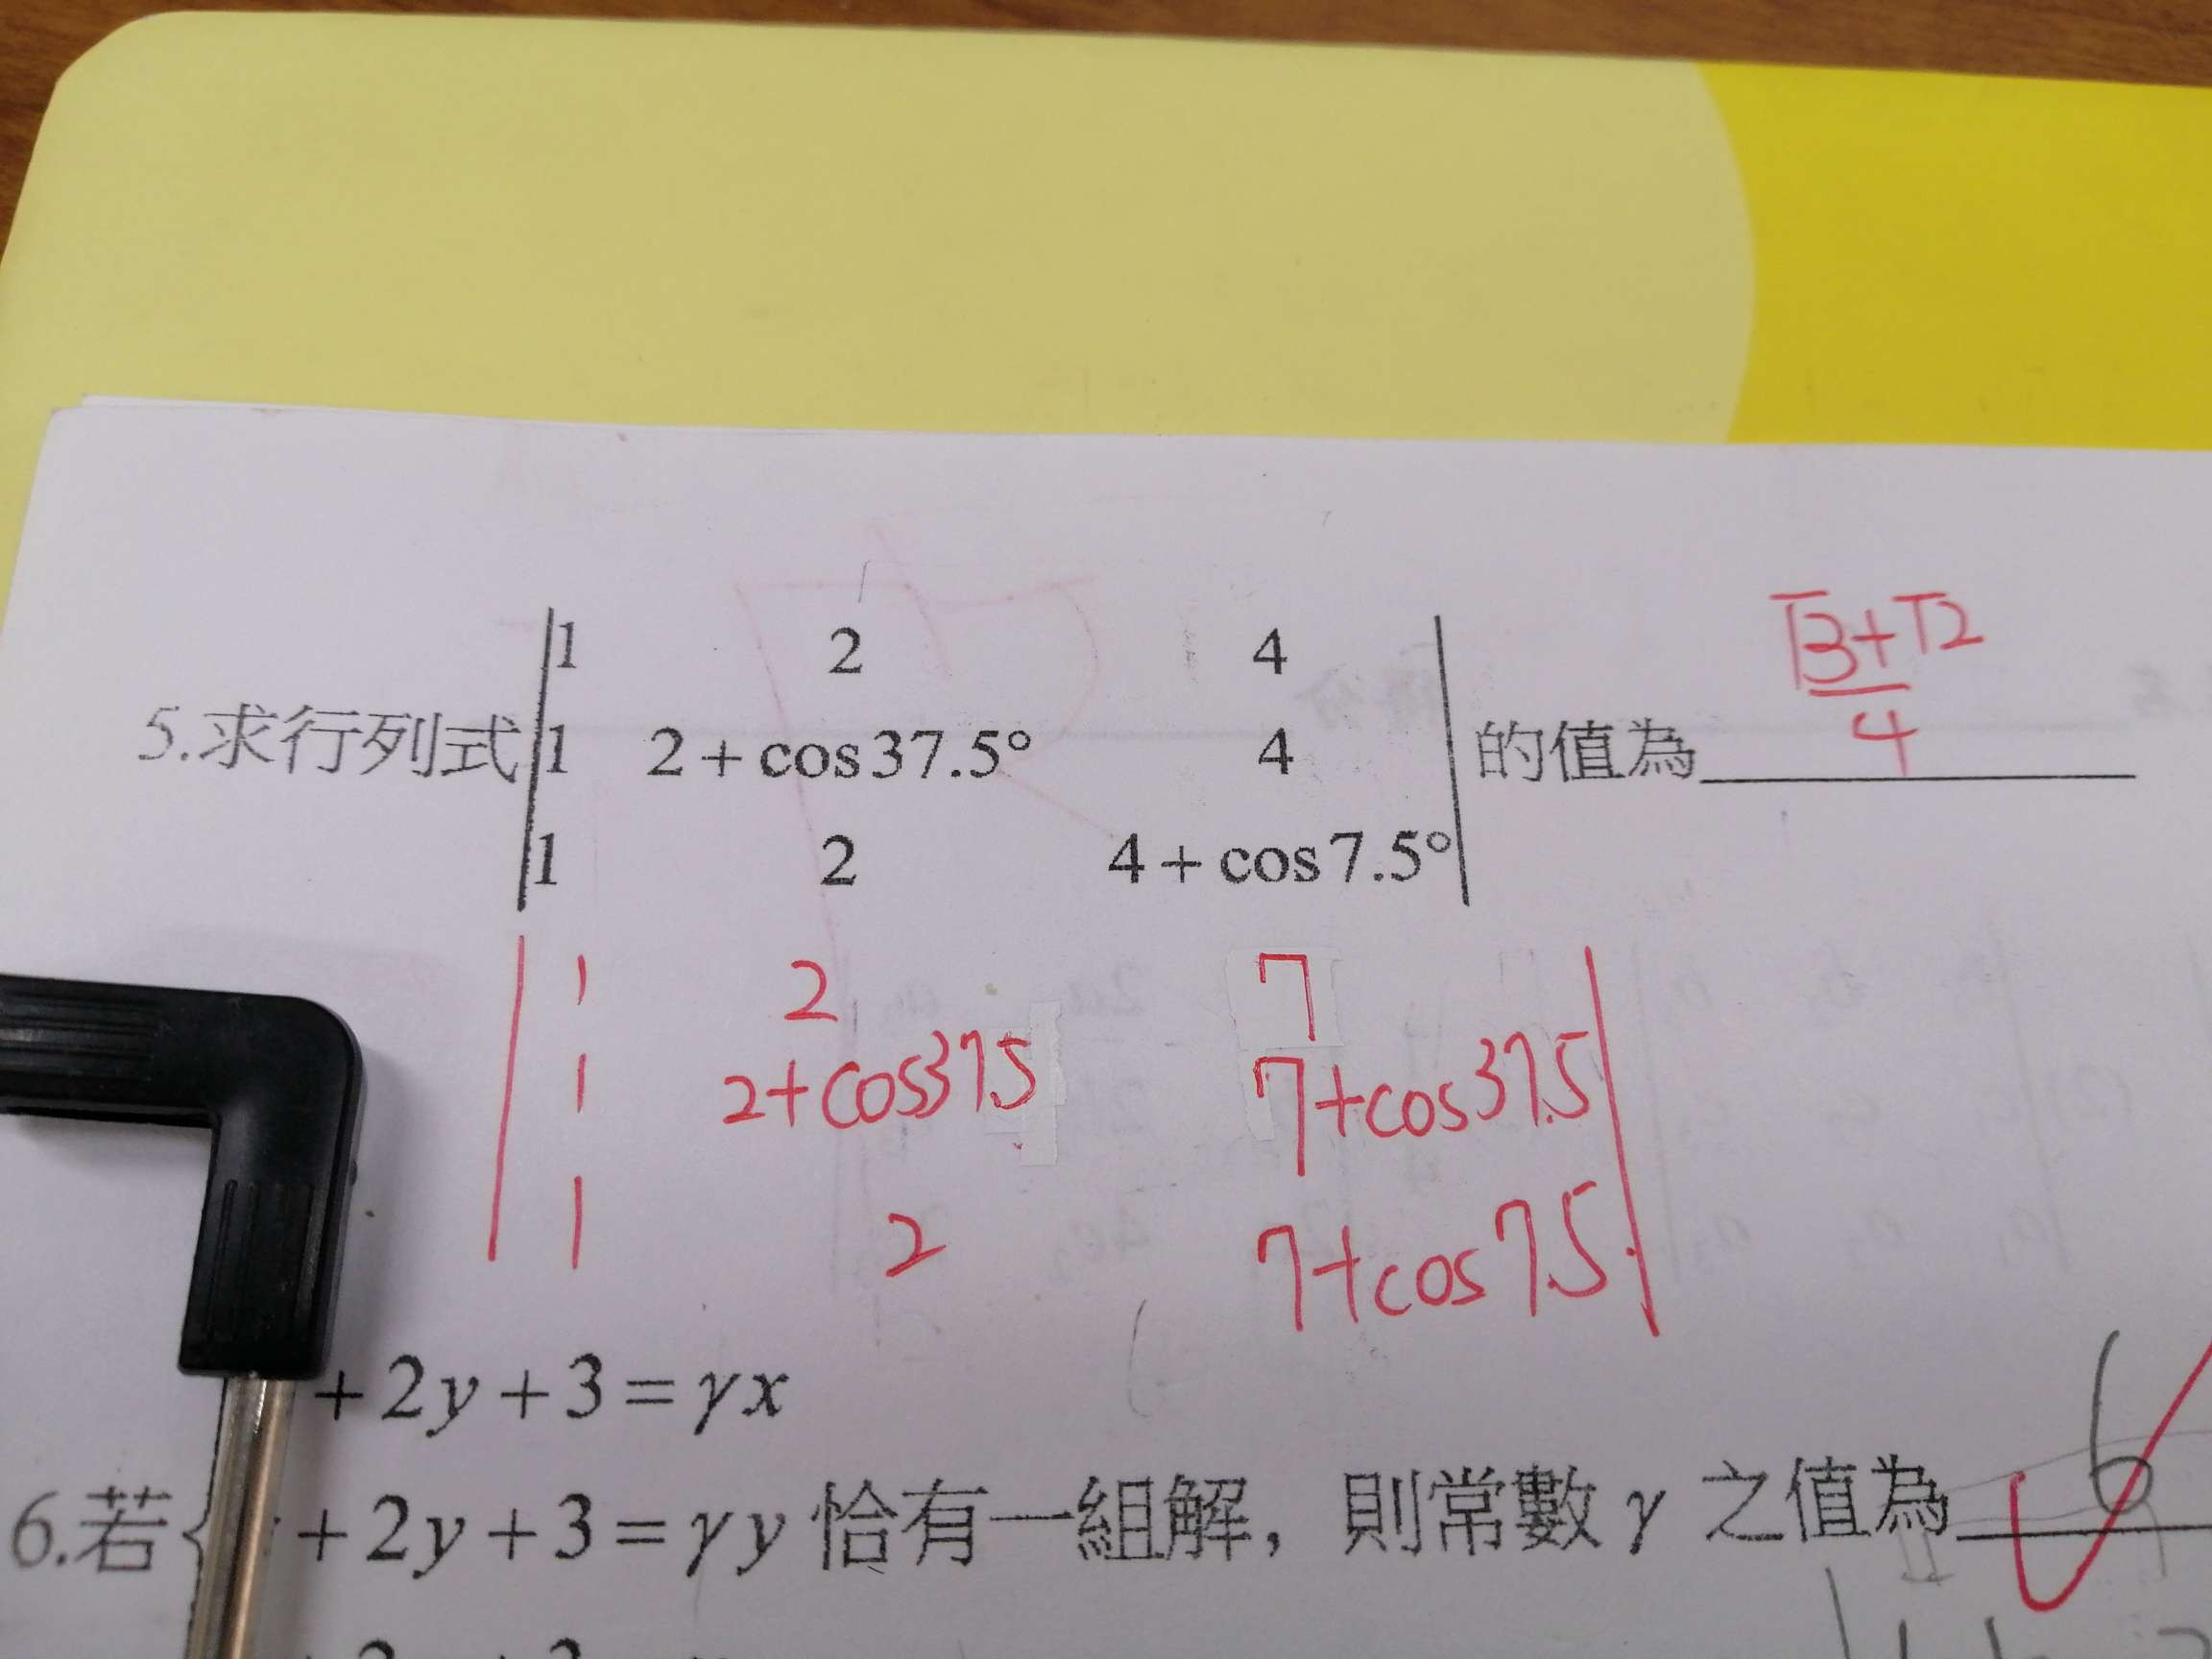 5.求行列式 |1 2 4| 的值為 √3+√2/4
|1 2+cos37.5° 4|
|1 2 4+cos7.5°|
| 1 2 7 |
| 1 2+cos37.5 7+cos37.5 |
| 1 2 7+cos7.5 |
+2y+3=γx
6.若{ +2y+3=γy 恰有一組解，則常數γ之值為 6